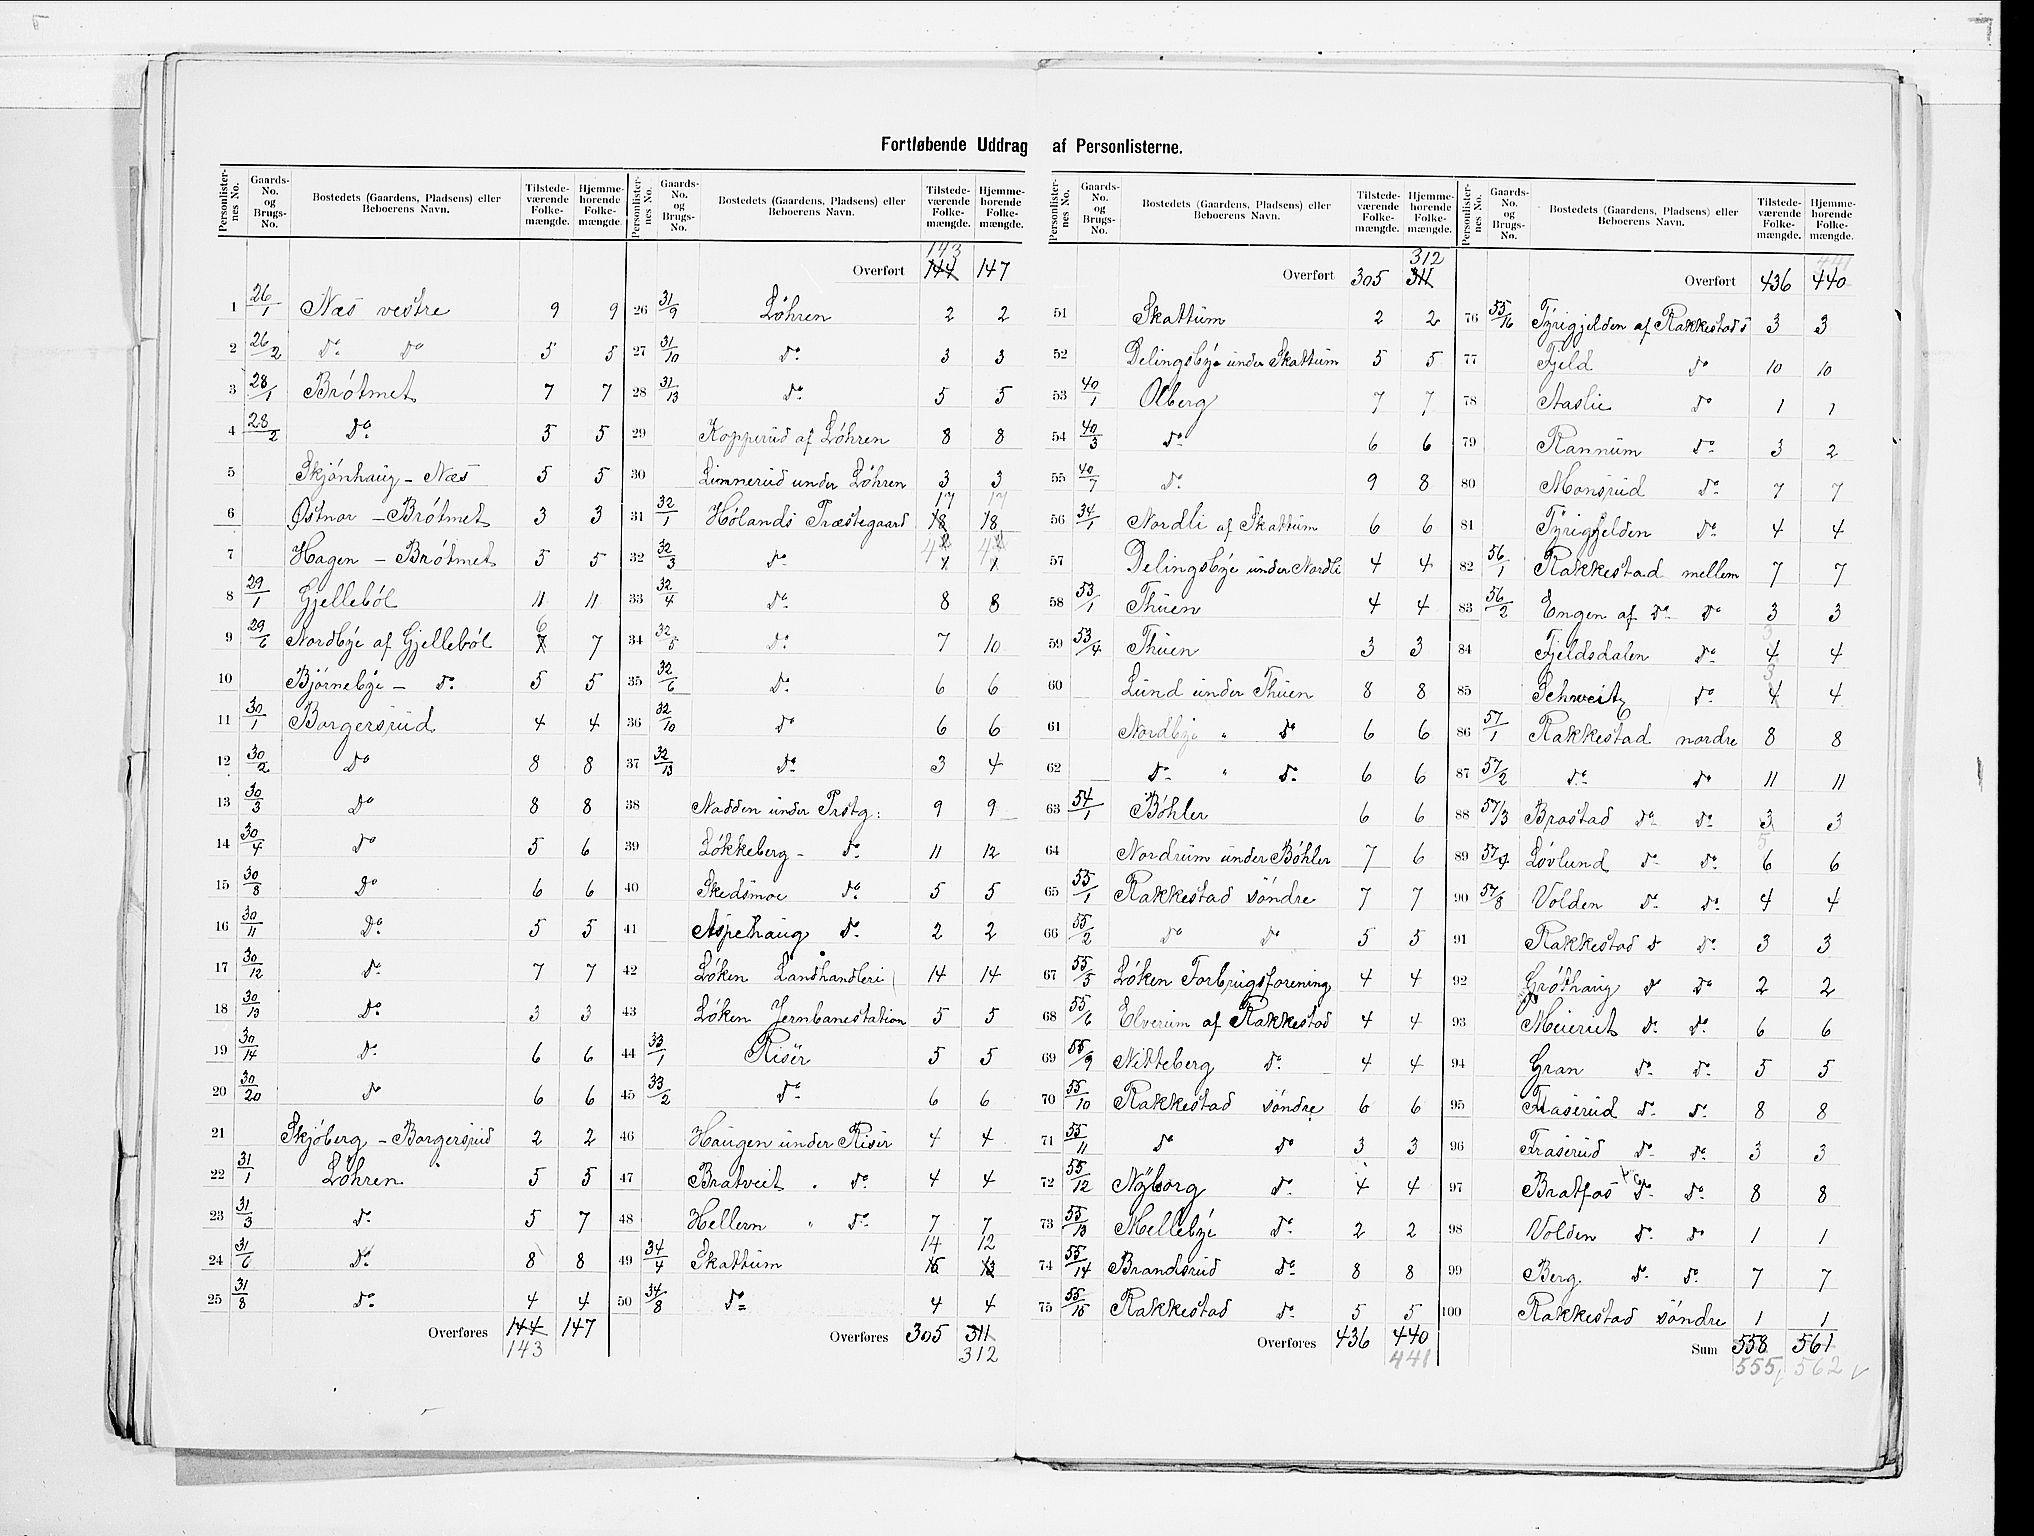 Fortløbende Uddrag af Personlisterne.
Personlister-nes No. Gaards-No. og Brugs-No. Bostedets (Gaardens, Pladsens) eller Beboerens Navn. Tilstede-værende Folke-mængde. Hjemme-hørende Folke-mængde.
1 26/1 Næs vestre 9 9
2 26/2 Do Do 5 5
3 28/1 Brótmet 7 7
4 28/2 Do 5 5
5 Skjónhaug - Næs 5 5
6 Østnor - Brótmet 3 3
7 Hagen - Brótmet 5 5
8 29/1 Gjelleból 11 11
9 29/6 Nordbye af Gjelleból 7 6 7
10 Bjørnebye - Do 5 5
11 30/1 Borgersrud 4 4
12 30/2 Do 8 8
13 30/3 Do 8 8
14 30/4 Do 5 6
15 30/8 Do 6 6
16 30/11 Do 5 5
17 30/12 Do 7 7
18 30/13 Do 3 3
19 30/14 Do 6 6
20 30/20 Do 6 6
21 Skjøberg - Borgersrud 2 2
22 31/1 Løhren 5 5
23 31/3 Do 5 7
24 31/6 Do 8 8
25 31/8 Do 4 4
Overføres 144 147
143
Personlister-nes No. Gaards-No. og Brugs-No. Bostedets (Gaardens, Pladsens) eller Beboerens Navn. Tilstede-værende Folke-mængde. Hjemme-hørende Folke-mængde.
143
Overført 144 147
26 31/9 Løhren 2 2
27 31/10 Do 3 3
28 31/13 Do 5 5
29 Kopperud af Løhren 8 8
30 Limnerud under Løhren 3 3
17 17
31 32/1 Hølands Præstegaard 18 18
32 32/3 Do
33 32/4 Do 8 8
34 32/5 Do 7 10
35 32/6 Do 6 6
36 32/10 Do 6 6
37 32/13 Do 3 4
38 Nadden under Prstg: 9 9
39 Løkkeberg - Do 11 12
40 Skedsmoe Do 5 5
41 Aspehaug Do 2 2
42 Løken Landhandleri 14 14
43 Løken Jernbanestation 5 5
44 33/1 Riser 5 5
45 33/2 Do 6 6
46 Haugen under Riser 4 4
47 Bratveit " Do 4 4
48 Hellern " Do 7 7
14 12
49 34/4 Skattum 15 13
50 34/8 Do 4 4
Overføres 305 311
312
Personlister-nes No. Gaards-No. og Brugs-No. Bostedets (Gaardens, Pladsens) eller Beboerens Navn. Tilstede-værende Folke-mængde. Hjemme-hørende Folke-mængde.
312
Overført 305 311
51 Skattum 2 2
52 Delingsbye under Skattum 5 5
53 40/1 Olberg 7 7
54 40/3 Do 6 6
55 40/7 Do 9 8
56 34/1 Nordli af Skattum 6 6
57 Delingsbye under Nordli 4 4
58 53/1 Thuen 4 4
59 53/4 Thuen 3 3
60 Lund under Thuen 8 8
61 Nordbye " Do 6 6
62 Do " Do 6 6
63 54/1 Bøhler 6 6
64 Nordrum under Bøhler 7 6
65 55/1 Rakkestad søndre 7 7
66 55/2 Do Do 5 5
67 55/5 Løken Forbrugsforening 4 4
68 55/6 Elverum af Rakkestad 4 4
69 55/9 Nitteberg Do 4 4
70 55/10 Rakkestad søndre 6 6
71 55/11 Do Do 3 3
72 55/12 Nyborg Do 4 4
73 55/13 Mellebye Do 2 2
74 55/14 Brandsrud Do 8 8
75 55/15 Rakkestad Do 5 5
Overføres 436 440
441
Personlister-nes No. Gaards-No. og Brugs-No. Bostedets (Gaardens, Pladsens) eller Beboerens Navn. Tilstede-værende Folke-mængde. Hjemme-hørende Folke-mængde.
441
Overført 436 440
76 55/16 Tyrigjelden af Rakkestad s 3 3
77 Fjeld Do 10 10
78 Aaslie Do 1 1
79 Rannum Do 3 2
80 Monsrud Do 7 7
81 Tyrigjelden Do 4 4
82 56/1 Rakkestad mellem 7 7
83 56/2 Engen af Do Do 3 3
3
84 Fjeldsdalen Do 4 4
3
85 Schweitz Do 4 4
86 57/1 Rakkestad nordre 8 8
87 57/2 Do Do 11 11
88 57/3 Brastad Do Do 3 3
5
89 57/4 Løvlund Do Do 6 6
90 57/8 Volden Do Do 4 4
91 Rakkestad Do Do 3 3
92 Gróthaug Do Do 2 2
93 Meieriet Do Do 6 6
94 Gran Do Do 5 5
95 Fraserud Do Do 8 8
96 Fraserud Do Do 3 3
97 Bratfos Do Do 8 8
98 Volden Do Do 1 1
99 Berg Do Do 7 7
100 Rakkestad søndre 1 1
Sum 558 561
555 562